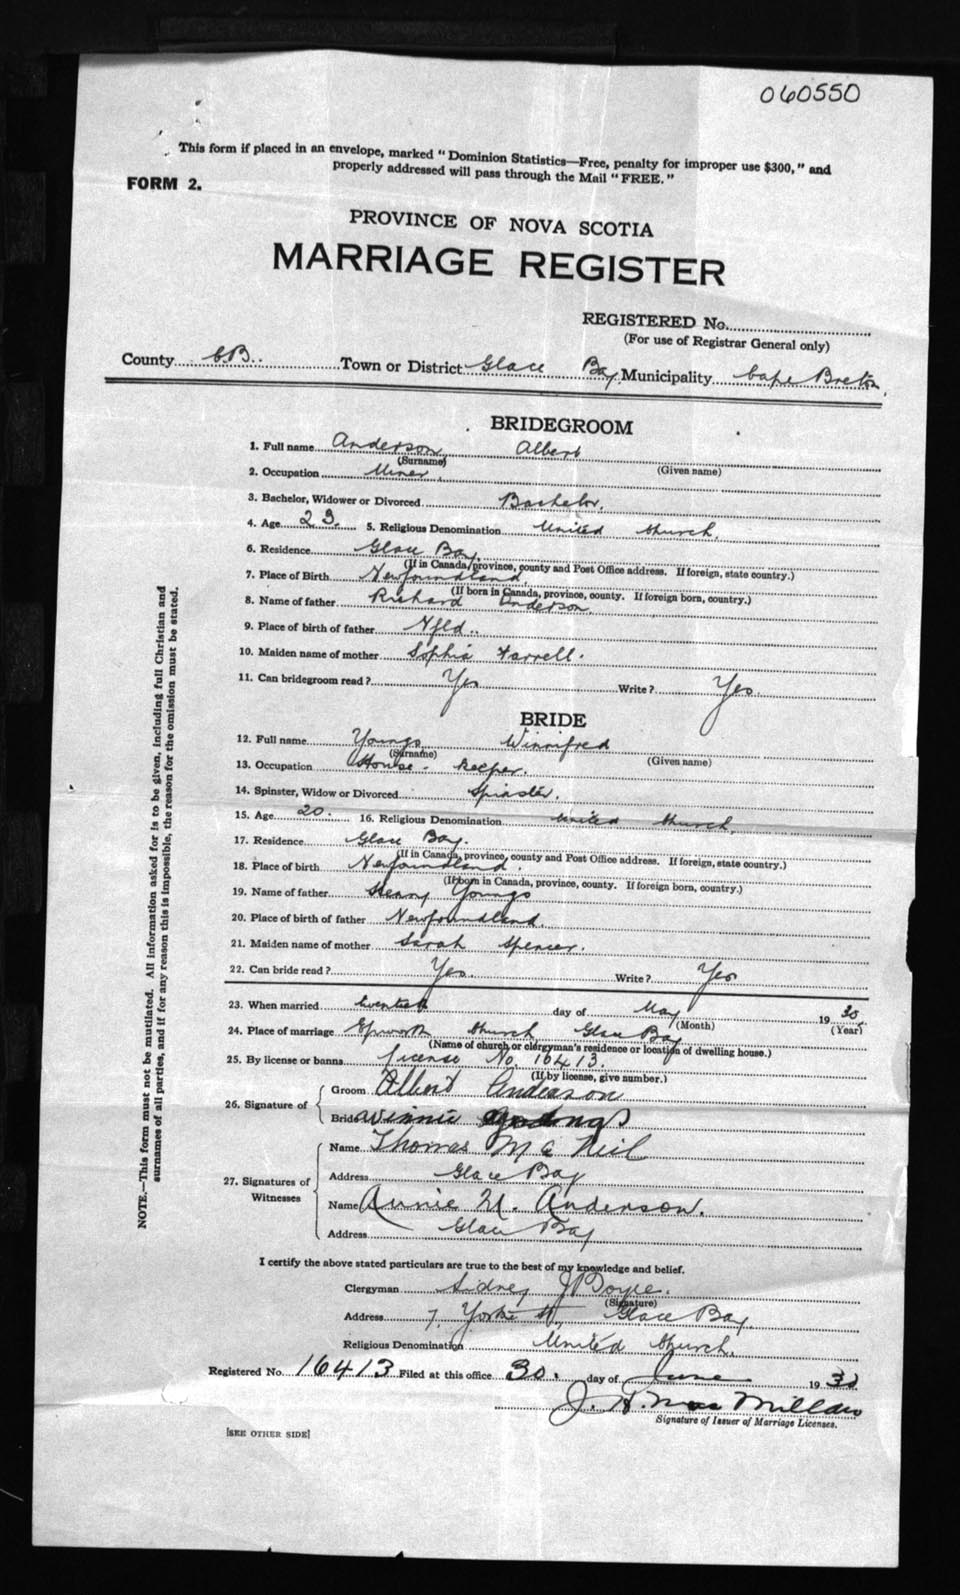 060550
This form if placed in an envelope, marked "Dominion Statistics—Free, penalty for improper use $300," and
properly addressed will pass through the Mail "FREE."
FORM 2.
PROVINCE OF NOVA SCOTIA
MARRIAGE REGISTER
REGISTERED No.
(For use of Registrar General only)
County C.B. Town or District Glace Bay Municipality Cape Breton
BRIDEGROOM
1. Full name Anderson Albert
(Surname) (Given name)
2. Occupation Miner
3. Bachelor, Widower or Divorced Bachelor.
4. Age 23. 5. Religious Denomination United Church.
6. Residence Glace Bay
(If in Canada, province, county and Post Office address. If foreign, state country.)
7. Place of Birth Newfoundland
(If born in Canada, province, county. If foreign born, country.)
8. Name of father Richard Anderson
9. Place of birth of father Nfld.
10. Maiden name of mother Sophia Farrell.
11. Can bridegroom read? Yes Write? Yes.
BRIDE
12. Full name Youngs Winnifred
(Surname) (Given name)
13. Occupation House-keeper.
14. Spinster, Widow or Divorced Spinster.
15. Age 20. 16. Religious Denomination United Church.
17. Residence Glace Bay.
(If in Canada, province, county and Post Office address. If foreign, state country.)
18. Place of birth Newfoundland.
(If born in Canada, province, county. If foreign born, country.)
19. Name of father Henry Youngs
20. Place of birth of father Newfoundland.
21. Maiden name of mother Sarah Spencer.
22. Can bride read? Yes. Write? Yes
23. When married twentieth day of May 1930
(Month) (Year)
24. Place of marriage Epworth Church Glace Bay
(Name of church or clergyman's residence or location of dwelling house.)
25. By license or banns License No. 16413.
(If by license, give number.)
26. Signature of
Groom Albert Anderson
Bride Winnie Youngs
27. Signatures of Witnesses
Name Thomas Mc Neil
Address Glace Bay
Name Annie M. Anderson.
Address Glace Bay
I certify the above stated particulars are true to the best of my knowledge and belief.
Clergyman Sidney J Boyce.
(Signature)
Address 7, Yorke St., Glace Bay.
Religious Denomination United Church.
Registered No. 16413 Filed at this office 30. day of June 1930
J. H. MacMillan
Signature of Issuer of Marriage Licenses.
[SEE OTHER SIDE]
NOTE.—This form must not be mutilated. All information asked for is to be given, including full Christian and
surnames of all parties, and if for any reason this is impossible, the reason for the omission must be stated.